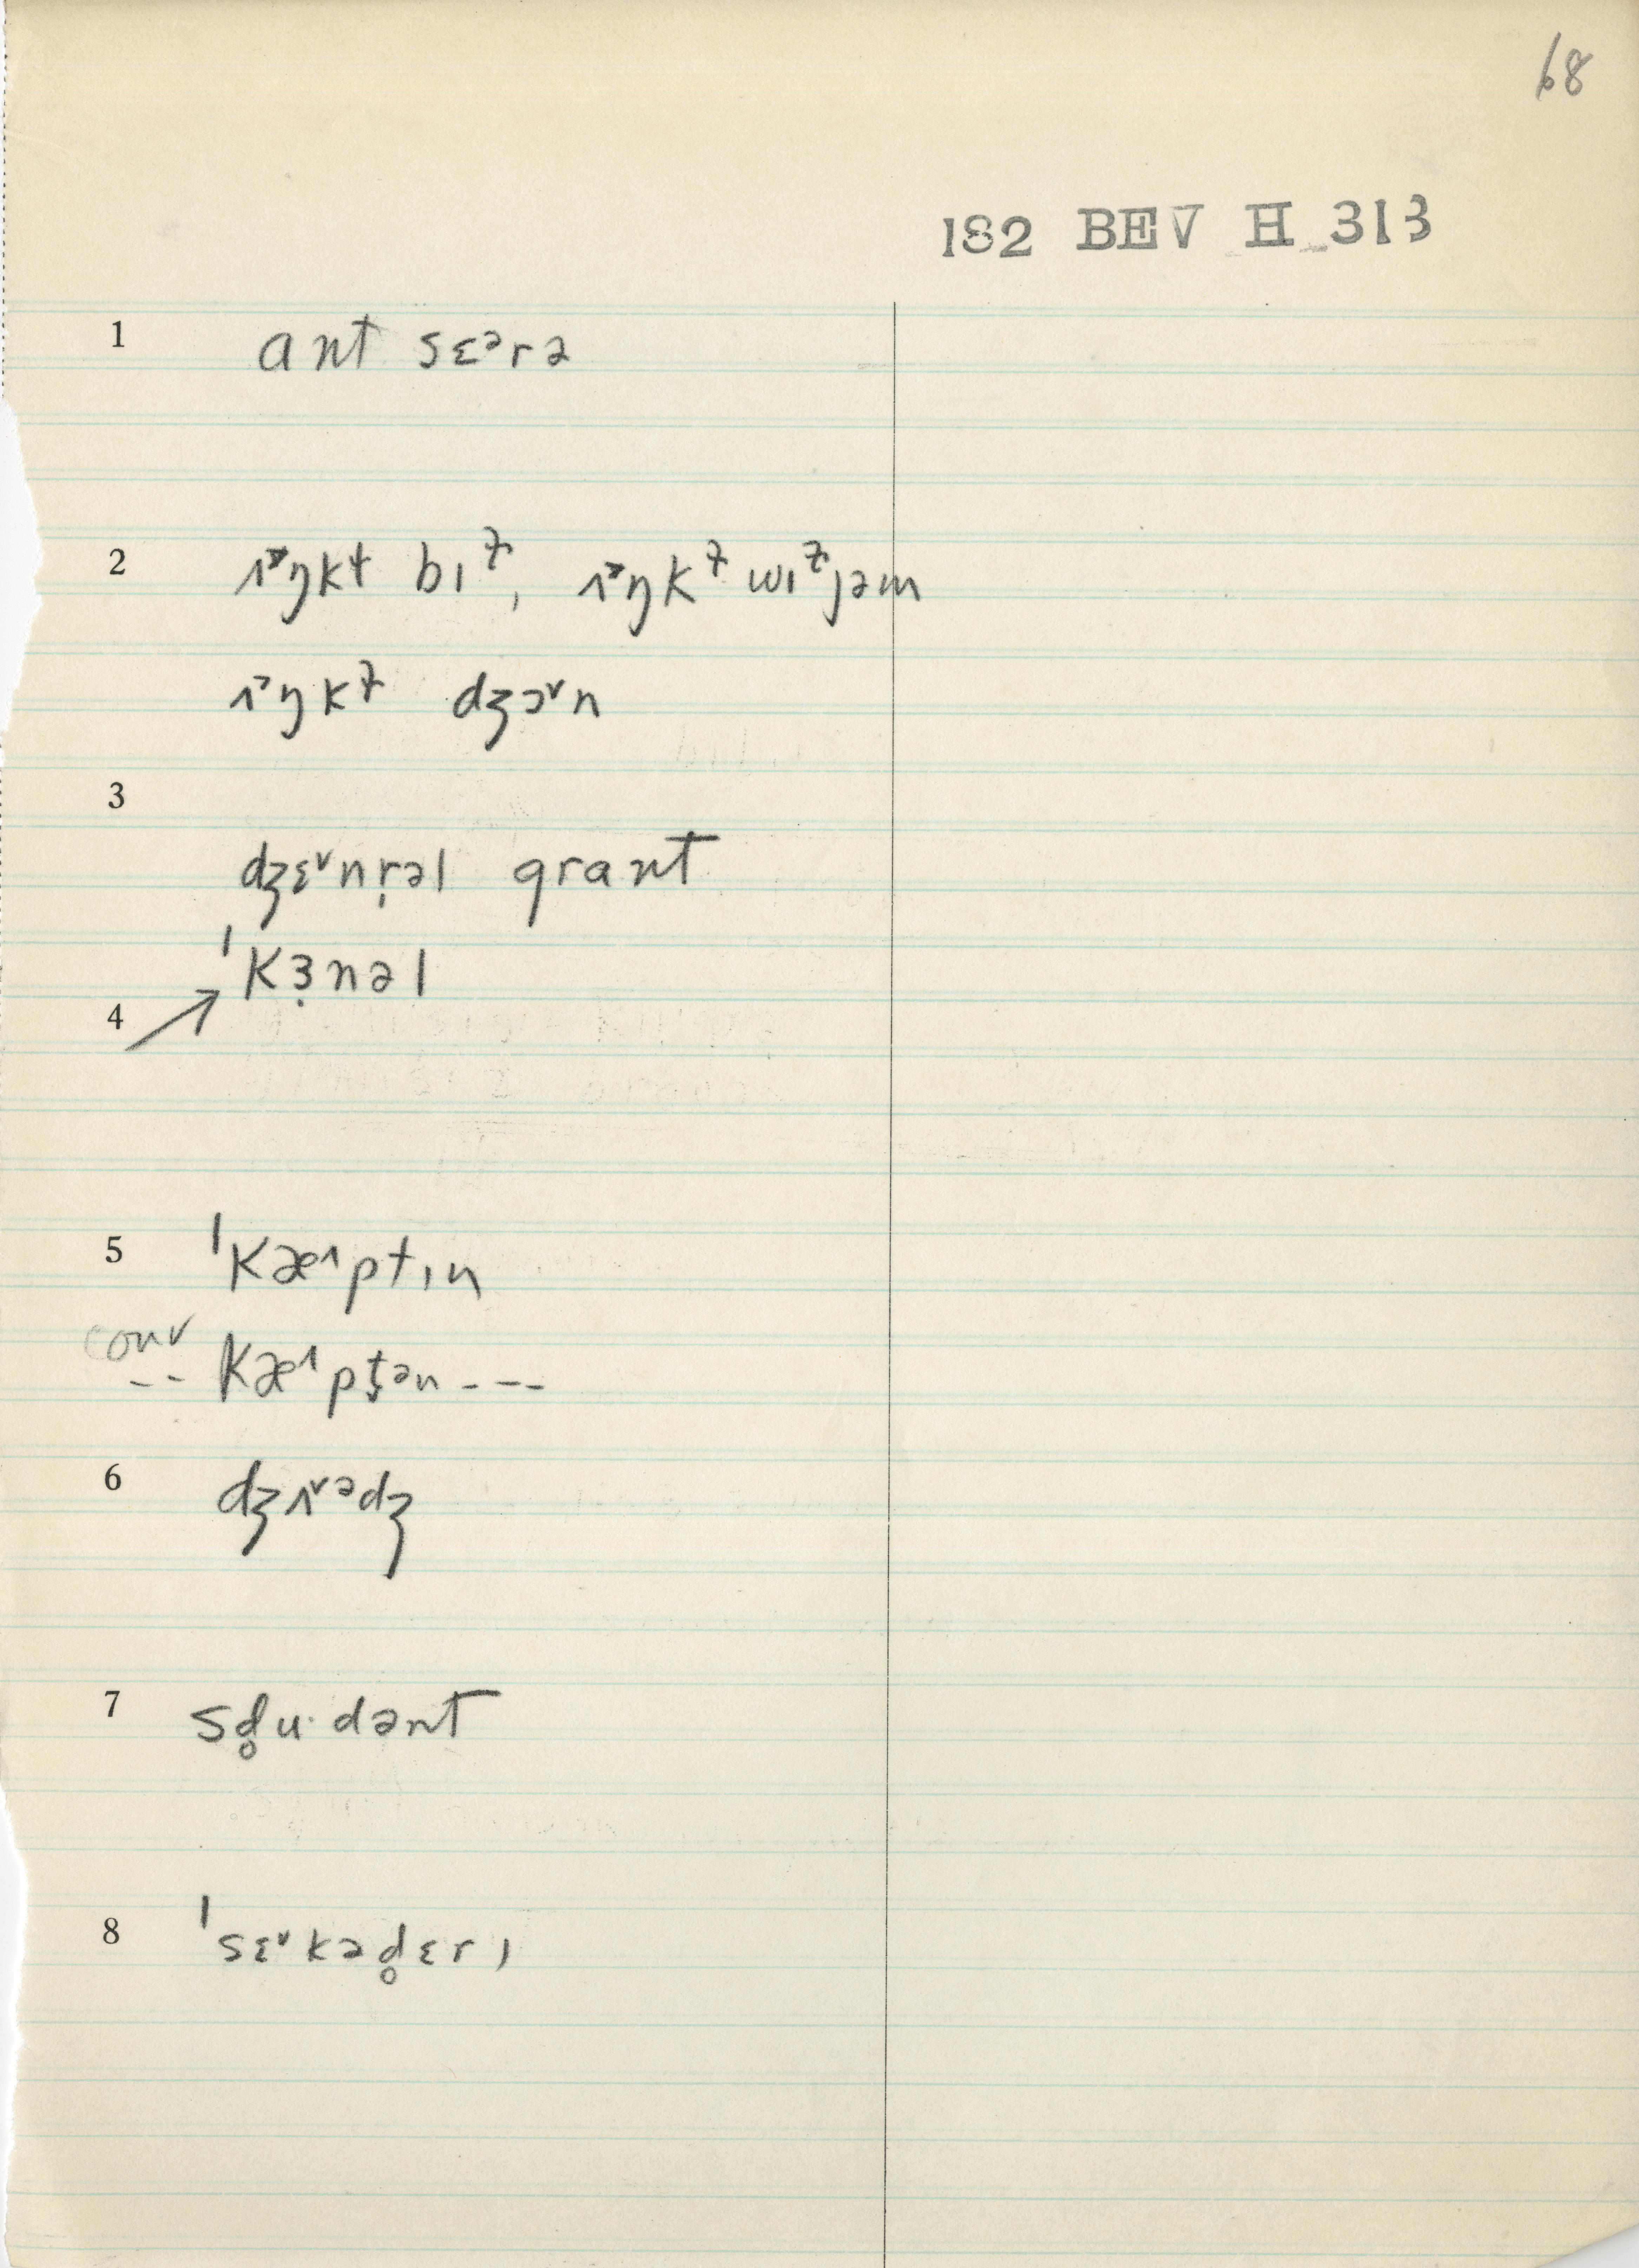 68
182 BEV H 313
1 ant sɛᵊrə
2 ɪ˃ŋkɫ bɪᶧ, ɪ˃ŋkᶧ wɪᶧjəm
ɪ˃ŋkᶧ dʒɔ˅n
3
dʒɛ˅nṛəl grant
ˈkɜ̣nəl
4
5 ˈkæ˄ptɪn
conv
-- kæ˄pt̬ən ---
6 dʒɪ˅ᵊdʒ
7 sd̥u·dənt
8 ˈsɛ˅kəd̥ɛrɪ